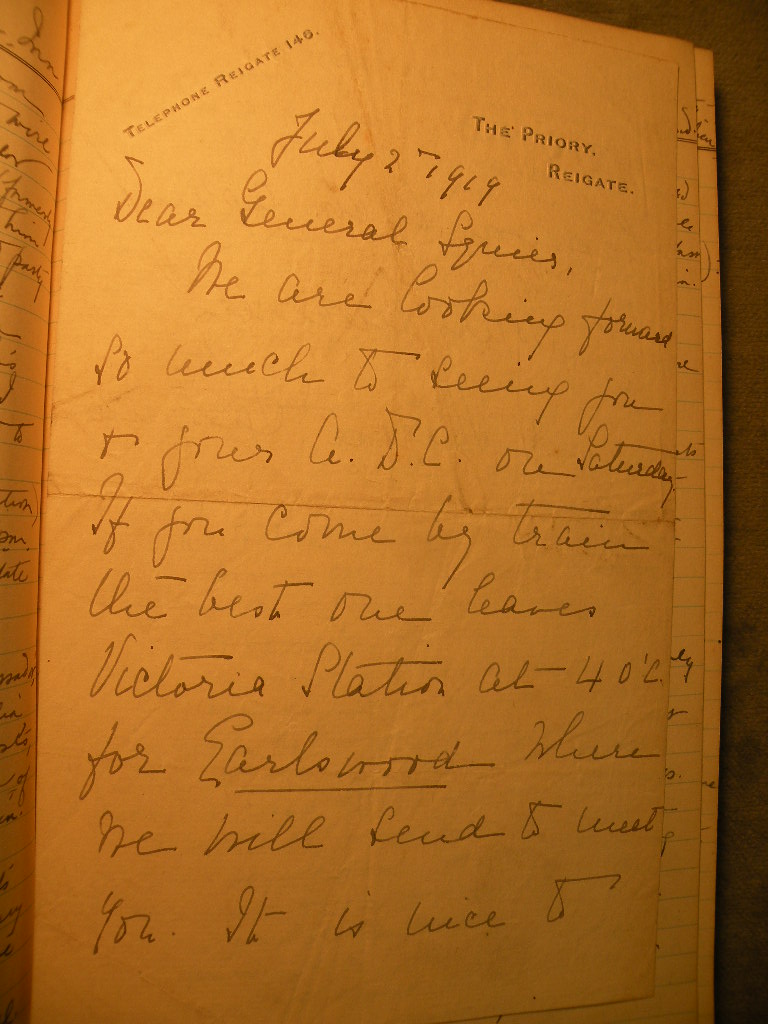 TELEPHONE REIGATE 146.
THE PRIORY,
REIGATE.
July 2nd 1919
Dear General Squier,
We are looking forward
so much to seeing you
& your A.D.C. on Saturday.
If you come by train
the best one leaves
Victoria Station at 4 o'c.
for Earlswood where
we will send to meet
you. It is nice to